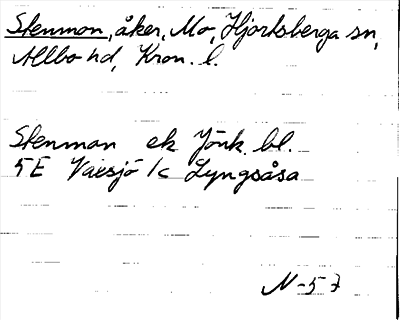 Stenmon, åker, Mo, Hjortsberga sn,
Allbo hd, Kron. l.
Stenman ek Jönk. bl.
5E Växsjö /c Lyngsåsa
N-57